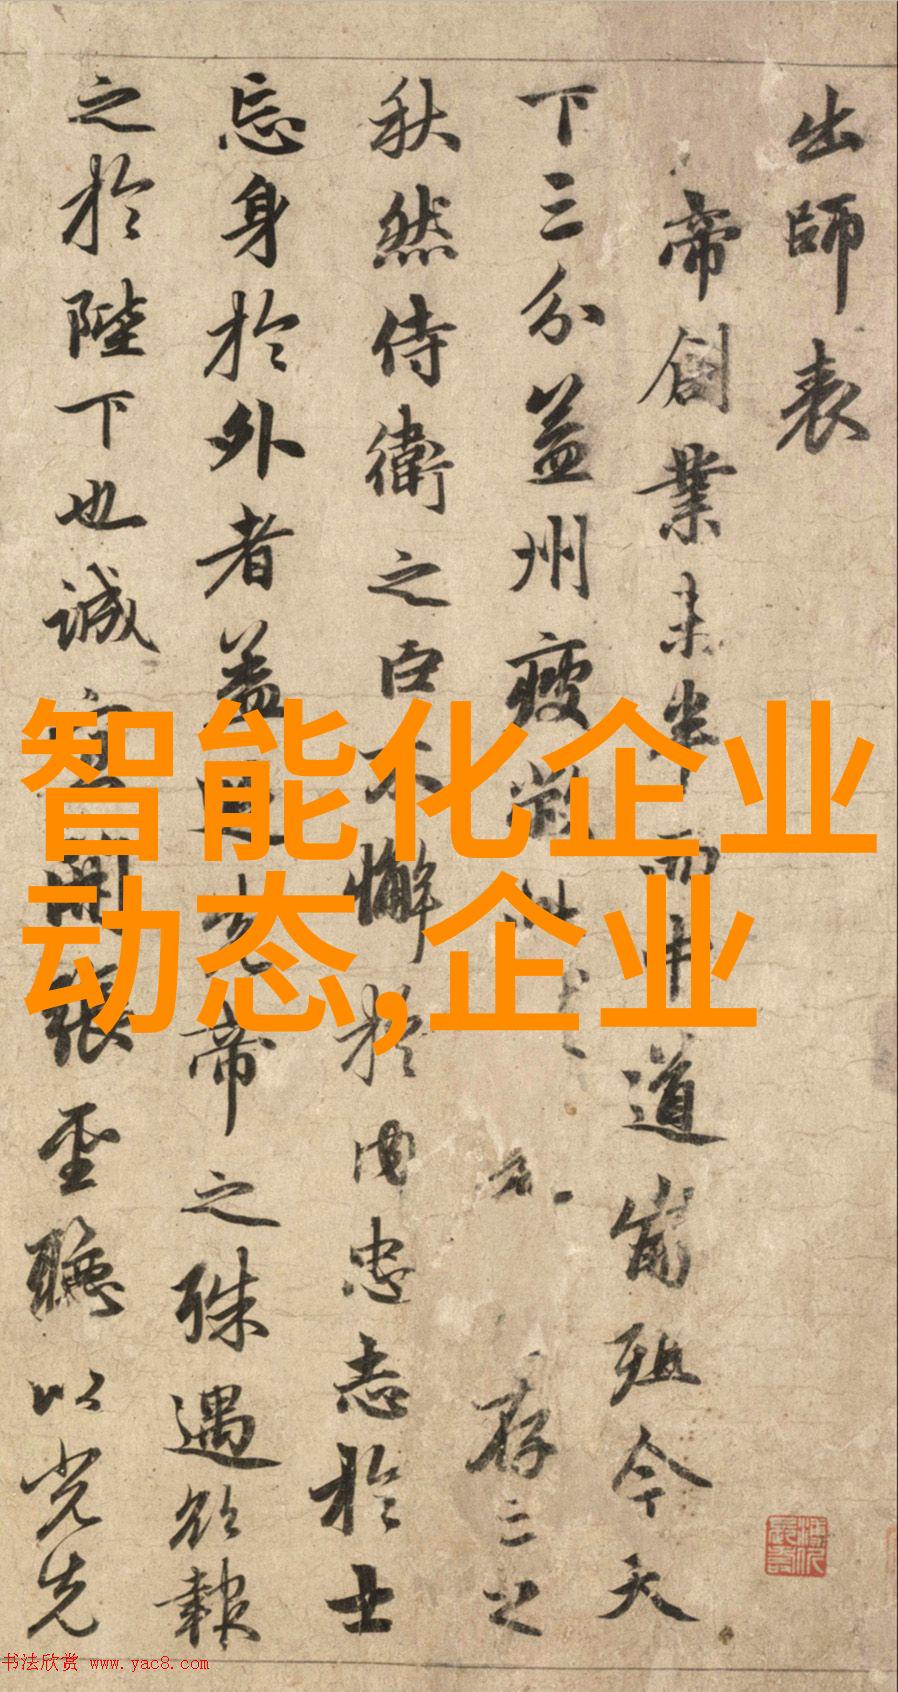 出師表
帝創業未半而中道崩殂今天
下三分益州疲敝此存亡之
秋然侍衛之臣不懈於内忠志於士
忘身於外者蓋追先帝之殊遇欲報
之於陛下也誠宜開張聖聽以光先
智能化企业
动态,企业
书法欣赏 www.yac8.com